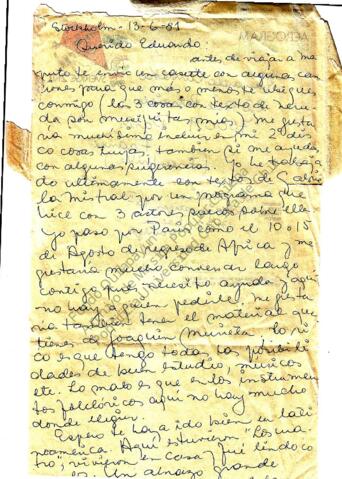 Stockholm - 13-6-81
Querido Eduardo:
antes de viajar a Ma
puto te envio un casette con algunas can
ciones para que más o menos te ubiques
conmigo (las 3 cosas con texto de Neru
da son musiquitas mías) Me gusta
ria muchisimo incluir en mi 2º dis
co cosas tuyas, también si me ayudas
con algunas sugerencias. Yo he trabaja
do ultimamente con textos de Gabrie
la Mistral por un programa que
hice con 3 actores suecos sobre ella
Yo paso por Paris como el 10 o 15
de Agosto de regreso de Africa y me
gustaria mucho conversar largo
contigo pues necesito ayuda y aquí
no hay a quien pedirle. Me gusta
ria también tener el material que
tienes de Joaquin Murieta. Lo ri
co es que tengo todas las posibili
dades de buen estudio, musicos
etc. Lo malo es que en los instrumen
tos folclóricos aqui no hay mucho
donde elegir.
Espero te haya ido bien en Lati
noamerica. Aquí estuvieron "Los
vivieron en casa. Qué lindo
Un abrazo grande